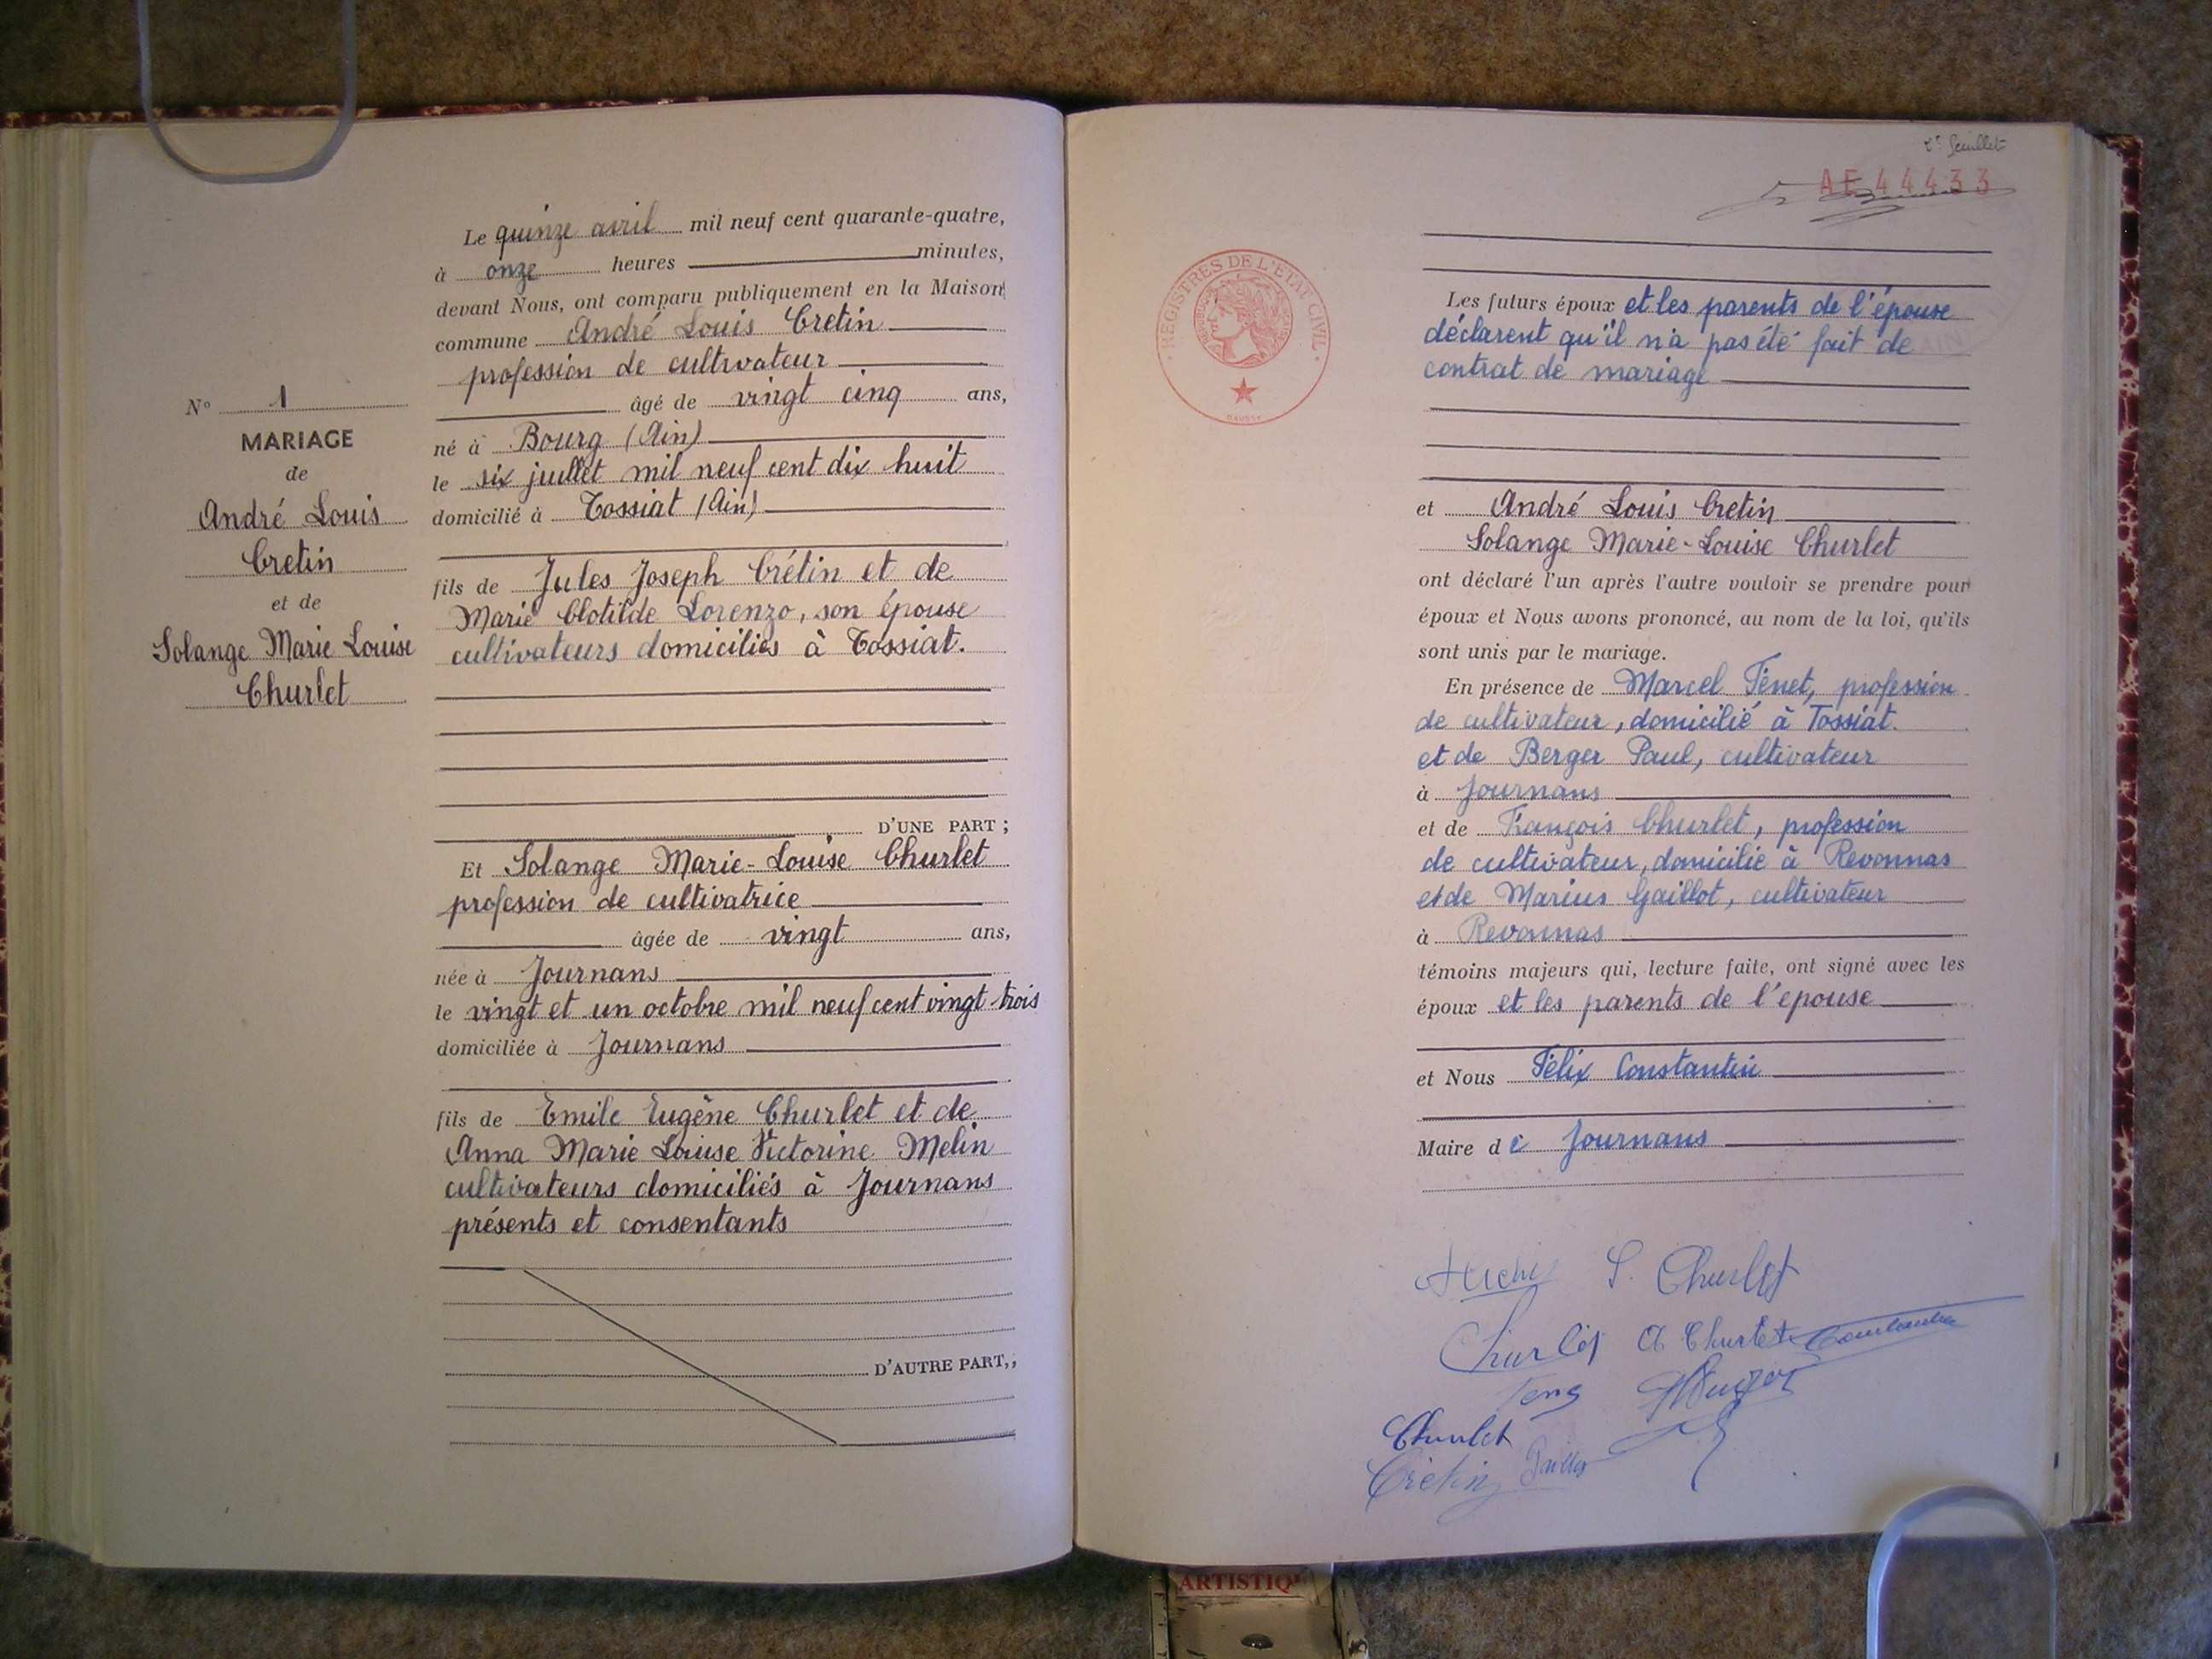 N° 1
MARIAGE
de
André Louis
Cretin
et de
Solange Marie Louise
Churlet
Le quinze avril mil neuf cent quarante-quatre,
à onze heures minutes,
devant Nous, ont comparu publiquement en la Maison
commune André Louis Cretin
profession de cultivateur
âgé de vingt cinq ans,
né à Bourg (Ain)
le six juillet mil neuf cent dix huit
domicilié à Tossiat (Ain)
fils de Jules Joseph Crétin et de
Marie Clotilde Lorenzo, son épouse
cultivateurs domiciliés à Tossiat.
D'UNE PART ;
Et Solange Marie-Louise Churlet
profession de cultivatrice
âgée de vingt ans,
née à Journans
le vingt et un octobre mil neuf cent vingt trois
domiciliée à Journans
fils de Emile Eugène Churlet et de
Anna Marie Louise Victorine Melin
cultivateurs domiciliés à Journans
présents et consentants
D'AUTRE PART,
feuillet
AE 44433
REGISTRES DE L'ETAT CIVIL
Les futurs époux et les parents de l'épouse
déclarent qu'il n'a pas été fait de
contrat de mariage
et André Louis Cretin
Solange Marie-Louise Churlet
ont déclaré l'un après l'autre vouloir se prendre pour
époux et Nous avons prononcé, au nom de la loi, qu'ils
sont unis par le mariage.
En présence de Marcel Tenet, profession
de cultivateur, domicilié à Tossiat.
et de Berger Paul, cultivateur
à Journans
et de François Churlet, profession
de cultivateur, domicilié à Revonnas
et de Marius Gaillot, cultivateur
à Revonnas
témoins majeurs qui, lecture faite, ont signé avec les
époux et les parents de l'epouse
et Nous Félix Constantin
Maire de Journans
S. Churlet
Churlet A Churlet Constantin
Churlet
Crétin
ARTISTIQ